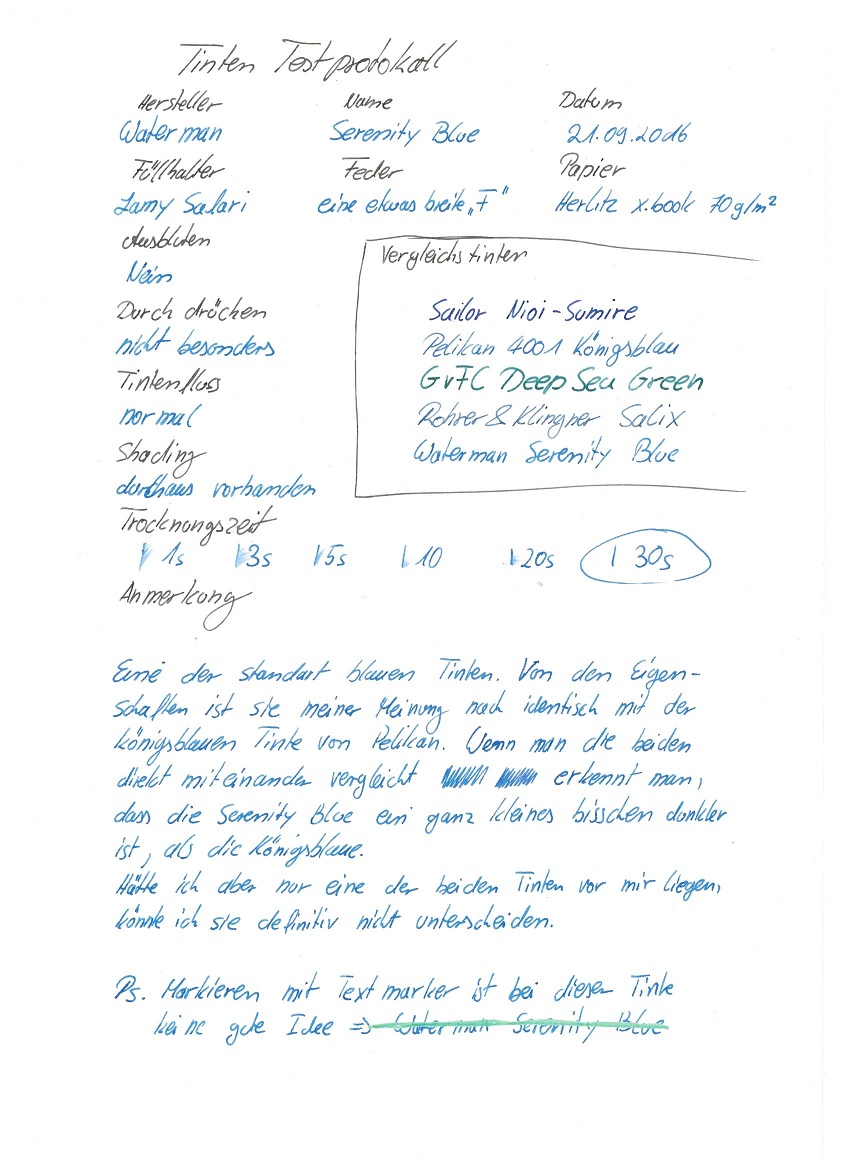 Tinten Testprotokoll
Hersteller Name Datum
Waterman Serenity Blue 21.09.2016
Füllhalter Feder Papier
Lamy Safari eine etwas breite „F" Herlitz x.book 70g/m²
Ausbluten
Nein
Vergleichstinten
Durchdrücken
nicht besonders
Tintenfluss
normal
Shading
durchaus vorhanden
Sailor Nioi-Sumire
Pelikan 4001 Königsblau
GvFC Deep Sea Green
Rohrer & Klingner Salix
Waterman Serenity Blue
Trocknungszeit
1s 3s 5s 10 20s 30s
Anmerkung
Eine der standart blauen Tinten. Von den Eigen-
schaften ist sie meiner Meinung nach identisch mit der
königsblauen Tinte von Pelikan. Wenn man die beiden
direkt miteinander vergleicht erkennt man,
dass die Serenity Blue ein ganz kleines bisschen dunkler
ist, als die Königsblaue.
Hätte ich aber nur eine der beiden Tinten vor mir liegen,
könnte ich sie definitiv nicht unterscheiden.
Ps. Markieren mit Textmarker ist bei dieser Tinte
keine gute Idee => Waterman Serenity Blue